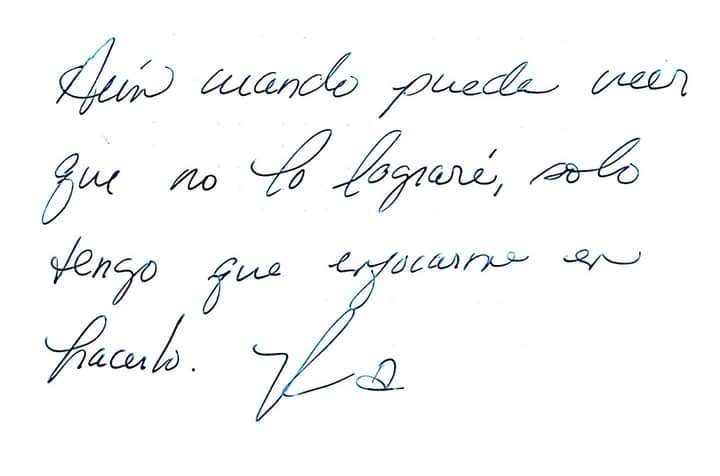 Aún cuando pueda creer
que no lo lograré, solo
tengo que enfocarme en
hacerlo.